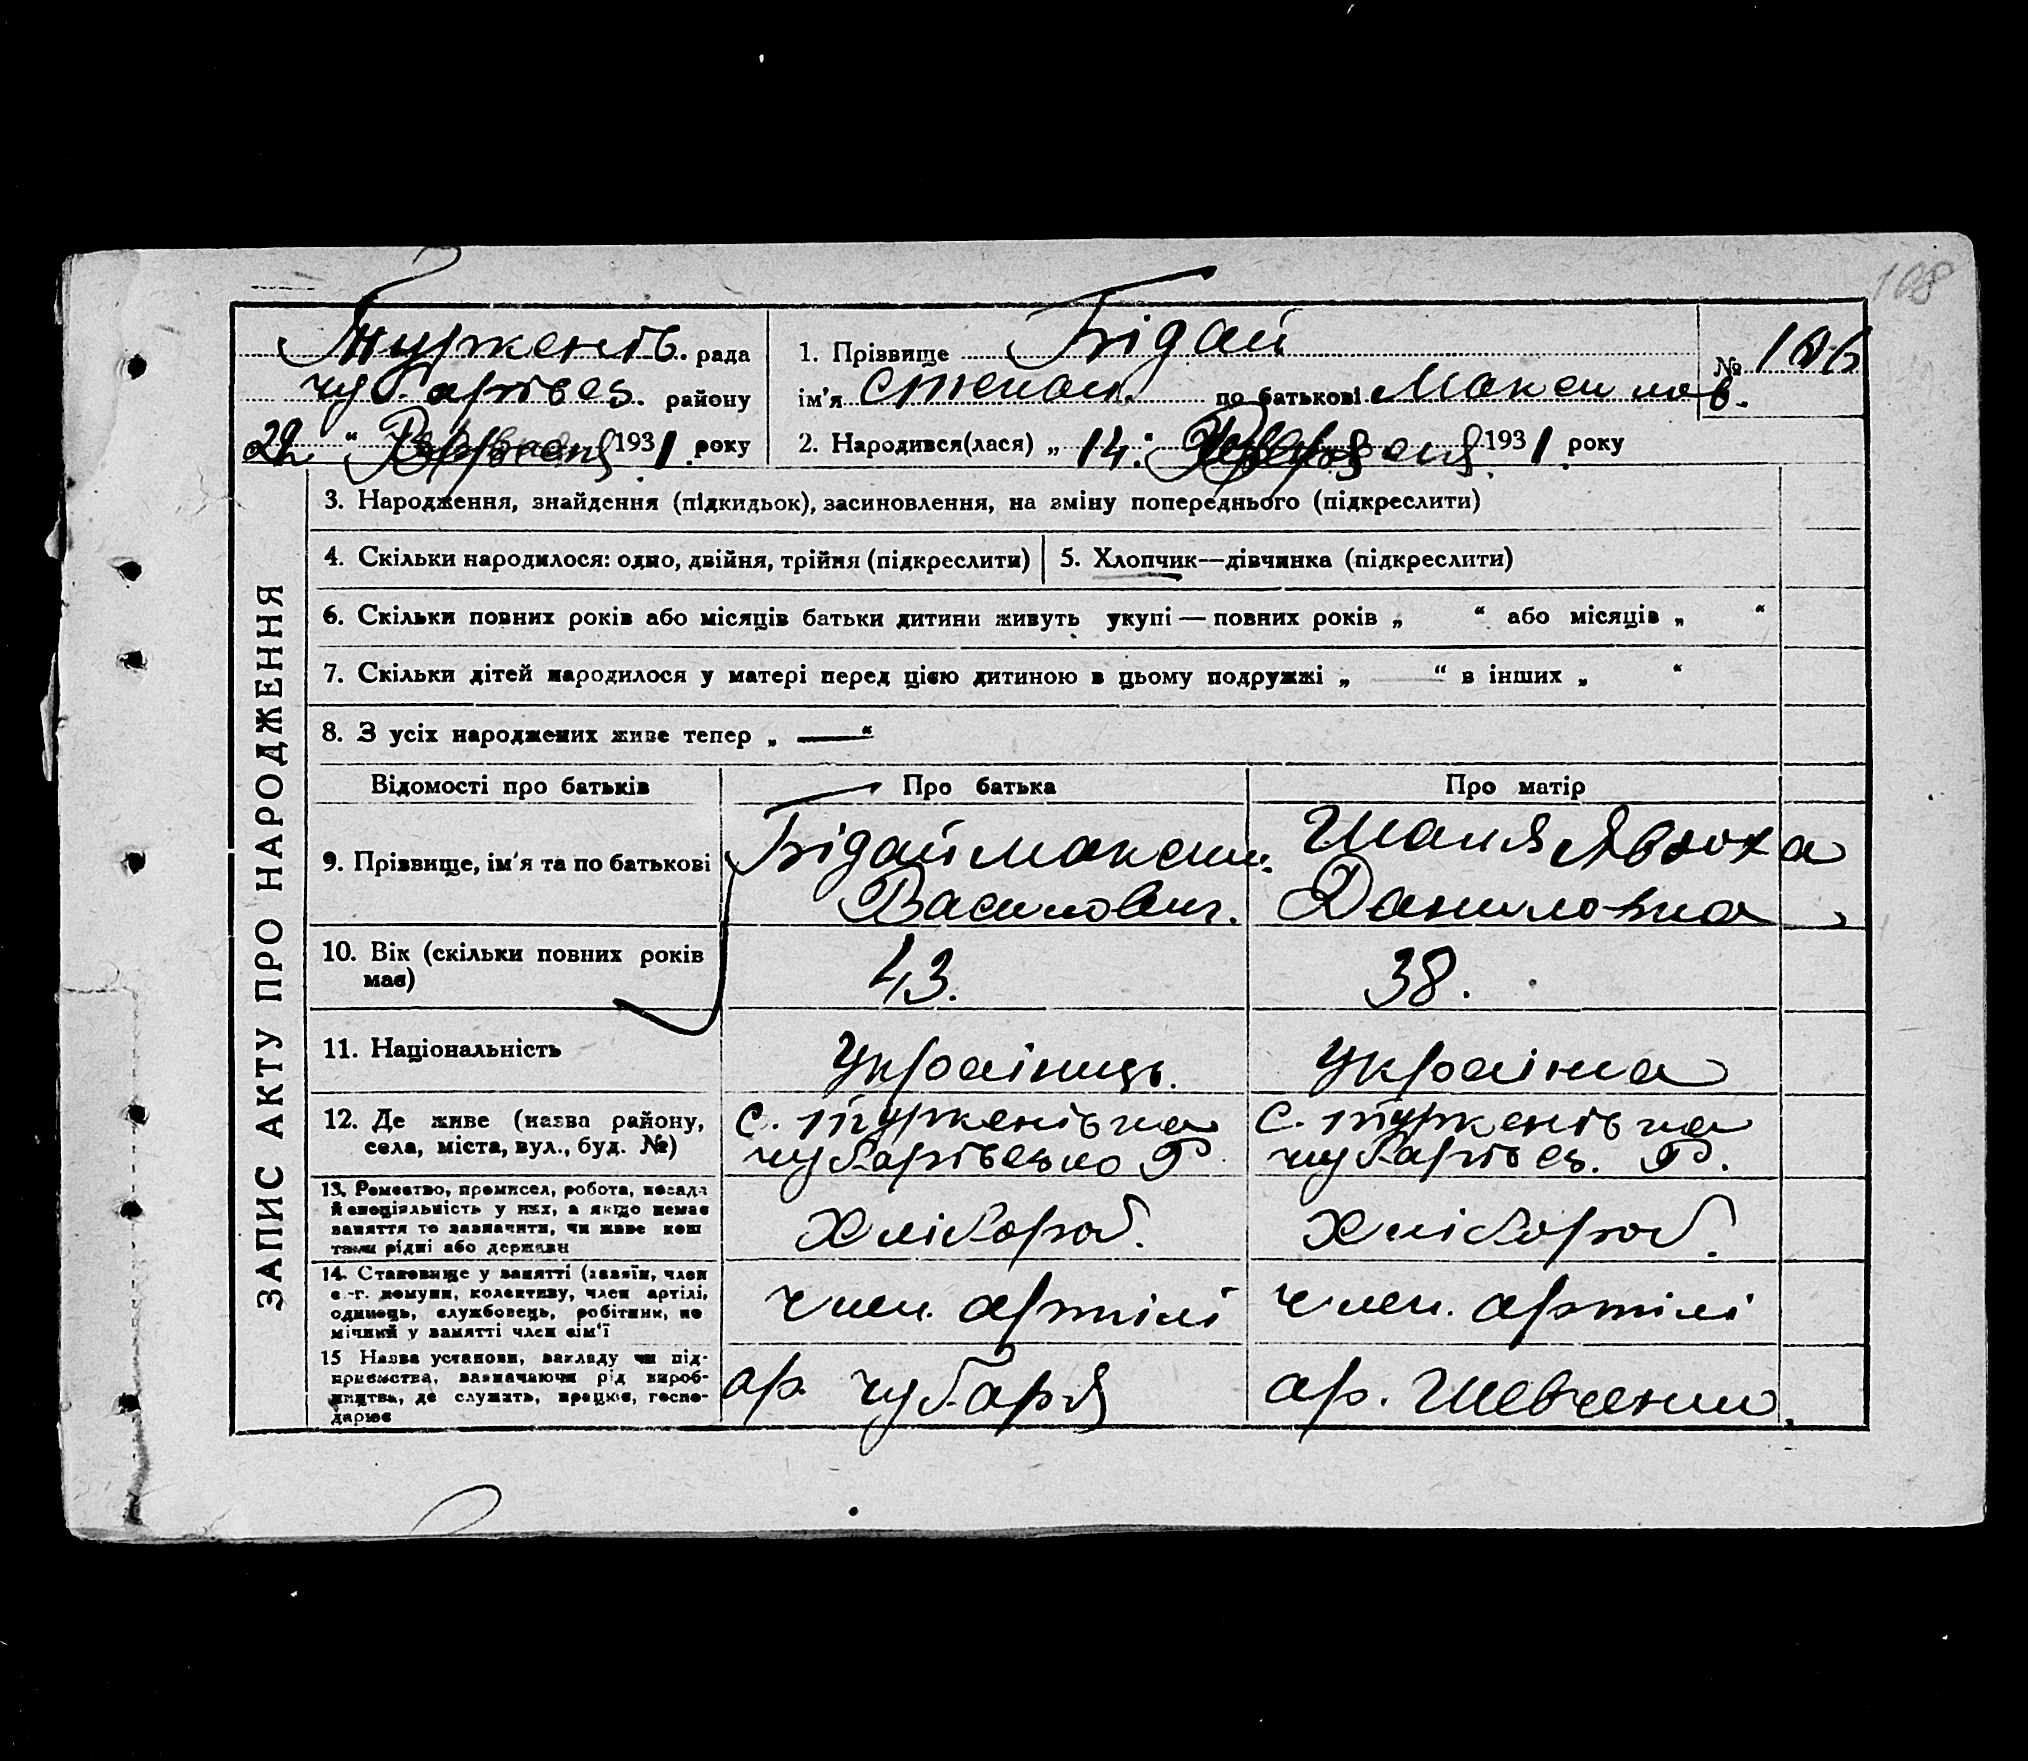 108
Туркенів. рада
Чубарівськ. району
22 " Вересня 1931 року
1. Прізвище Бідай
№ 106
ім'я Степан. по батькові Максимов.
2. Народився(лася) „ 14 " 1931 року
ЗАПИС АКТУ ПРО НАРОДЖЕННЯ
3. Народження, знайдення (підкидьок), засиновлення, на зміну попереднього (підкреслити)
4. Скільки народилося: одно, двійня, трійня (підкреслити)
5. Хлопчик—дівчинка (підкреслити)
6. Скільки повних років або місяців батьки дитини живуть укупі — повних років „ “ або місяців „ “
7. Скільки дітей народилося у матері перед цією дитиною в цьому подружжі „ — “ в інших „ “
8. З усіх народжених живе тепер „ — “
Відомості про батьків
Про батька
Про матір
9. Прізвище, ім'я та по батькові
Бідай Максим.
Василович.
Явдоха
Даниловна
10. Вік (скільки повних років
має)
43.
38.
11. Національність
Українець.
Українка
12. Де живе (назва району,
села, міста, вул., буд. №)
с. Туркенівка
Чубарівсько Р.
с. Туркенівка
Чубарівс. Р.
13. Ремество, промисел, робота, посада
й спеціяльність у них, а якщо немає
заняття то зазначити, чи живе кош
тами рідні або держави
Хлібороб.
Хлібороб.
14. Становище у занятті (хазяїн, член
с.-г. комуни, колективу, член артілі,
одинець, службовець, робітник, по
мічний у занятті член сім'ї
член. артілі
член. артілі
15 Назва установи, закладу чи під-
приємства, зазначаючи рід вироб-
ництва, де служить, працює, госпо-
дарює
ар. Чубаря
ар. Шевченки.